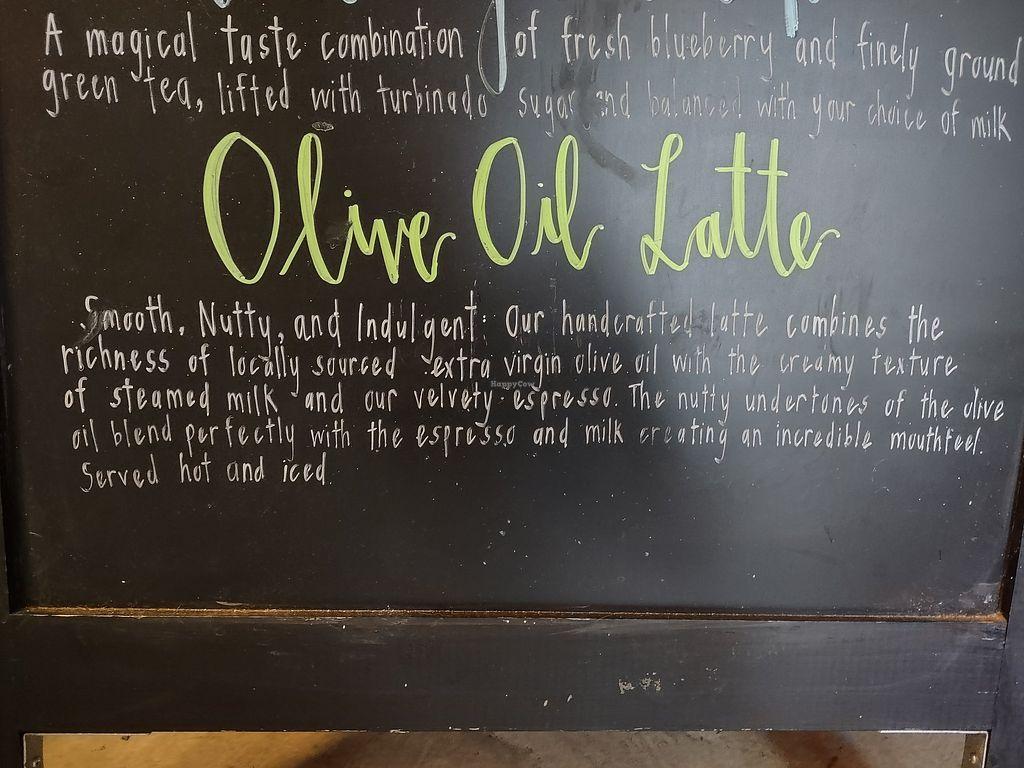 A magical taste combination of fresh blueberry and finely ground
green tea, lifted with turbinado sugar and balanced with your choice of milk
Olive Oil Latte
Smooth, Nutty, and Indulgent: Our handcrafted latte combines the
richness of locally sourced extra virgin olive oil with the creamy texture
HappyCow
of steamed milk and our velvety espresso. The nutty undertones of the olive
oil blend perfectly with the espresso and milk creating an incredible mouthfeel.
Served hot and iced